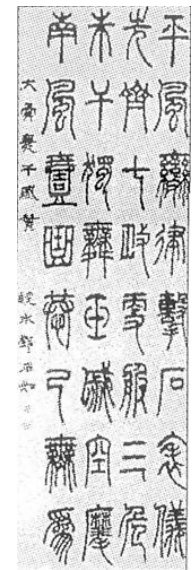 平風變律擊石來儀
先齊七政更服三危
朱干獨舞玉戚空麾
南風壹曲恭己無爲
大舜舞干戚贊 皖水鄧石如